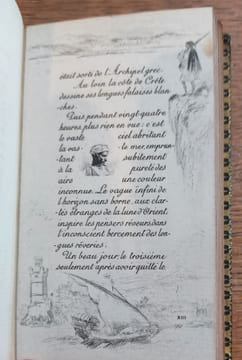 était sorti de l'Archipel grec.
Au loin la côte de Crête
dessine ses longues falaises blan-
ches.
Puis pendant vingt-quatre
heures plus rien en vue : c'est
le vaste ciel abritant
la vas- te mer, emprun-
tant subitement
à la pureté des
airs une couleur
inconnue. Le vague infini de
l'horizon sans borne, aux clar-
tés étranges de la lune d'Orient,
inspire les pensers rêveurs dans
l'inconscient bercement des lon-
gues rêveries.
Un beau jour, le troisième
seulement après avoir quitté le
XIII